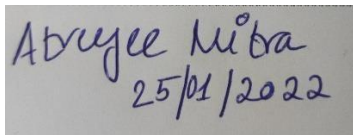 Atreyee Mitra
25/01/2022